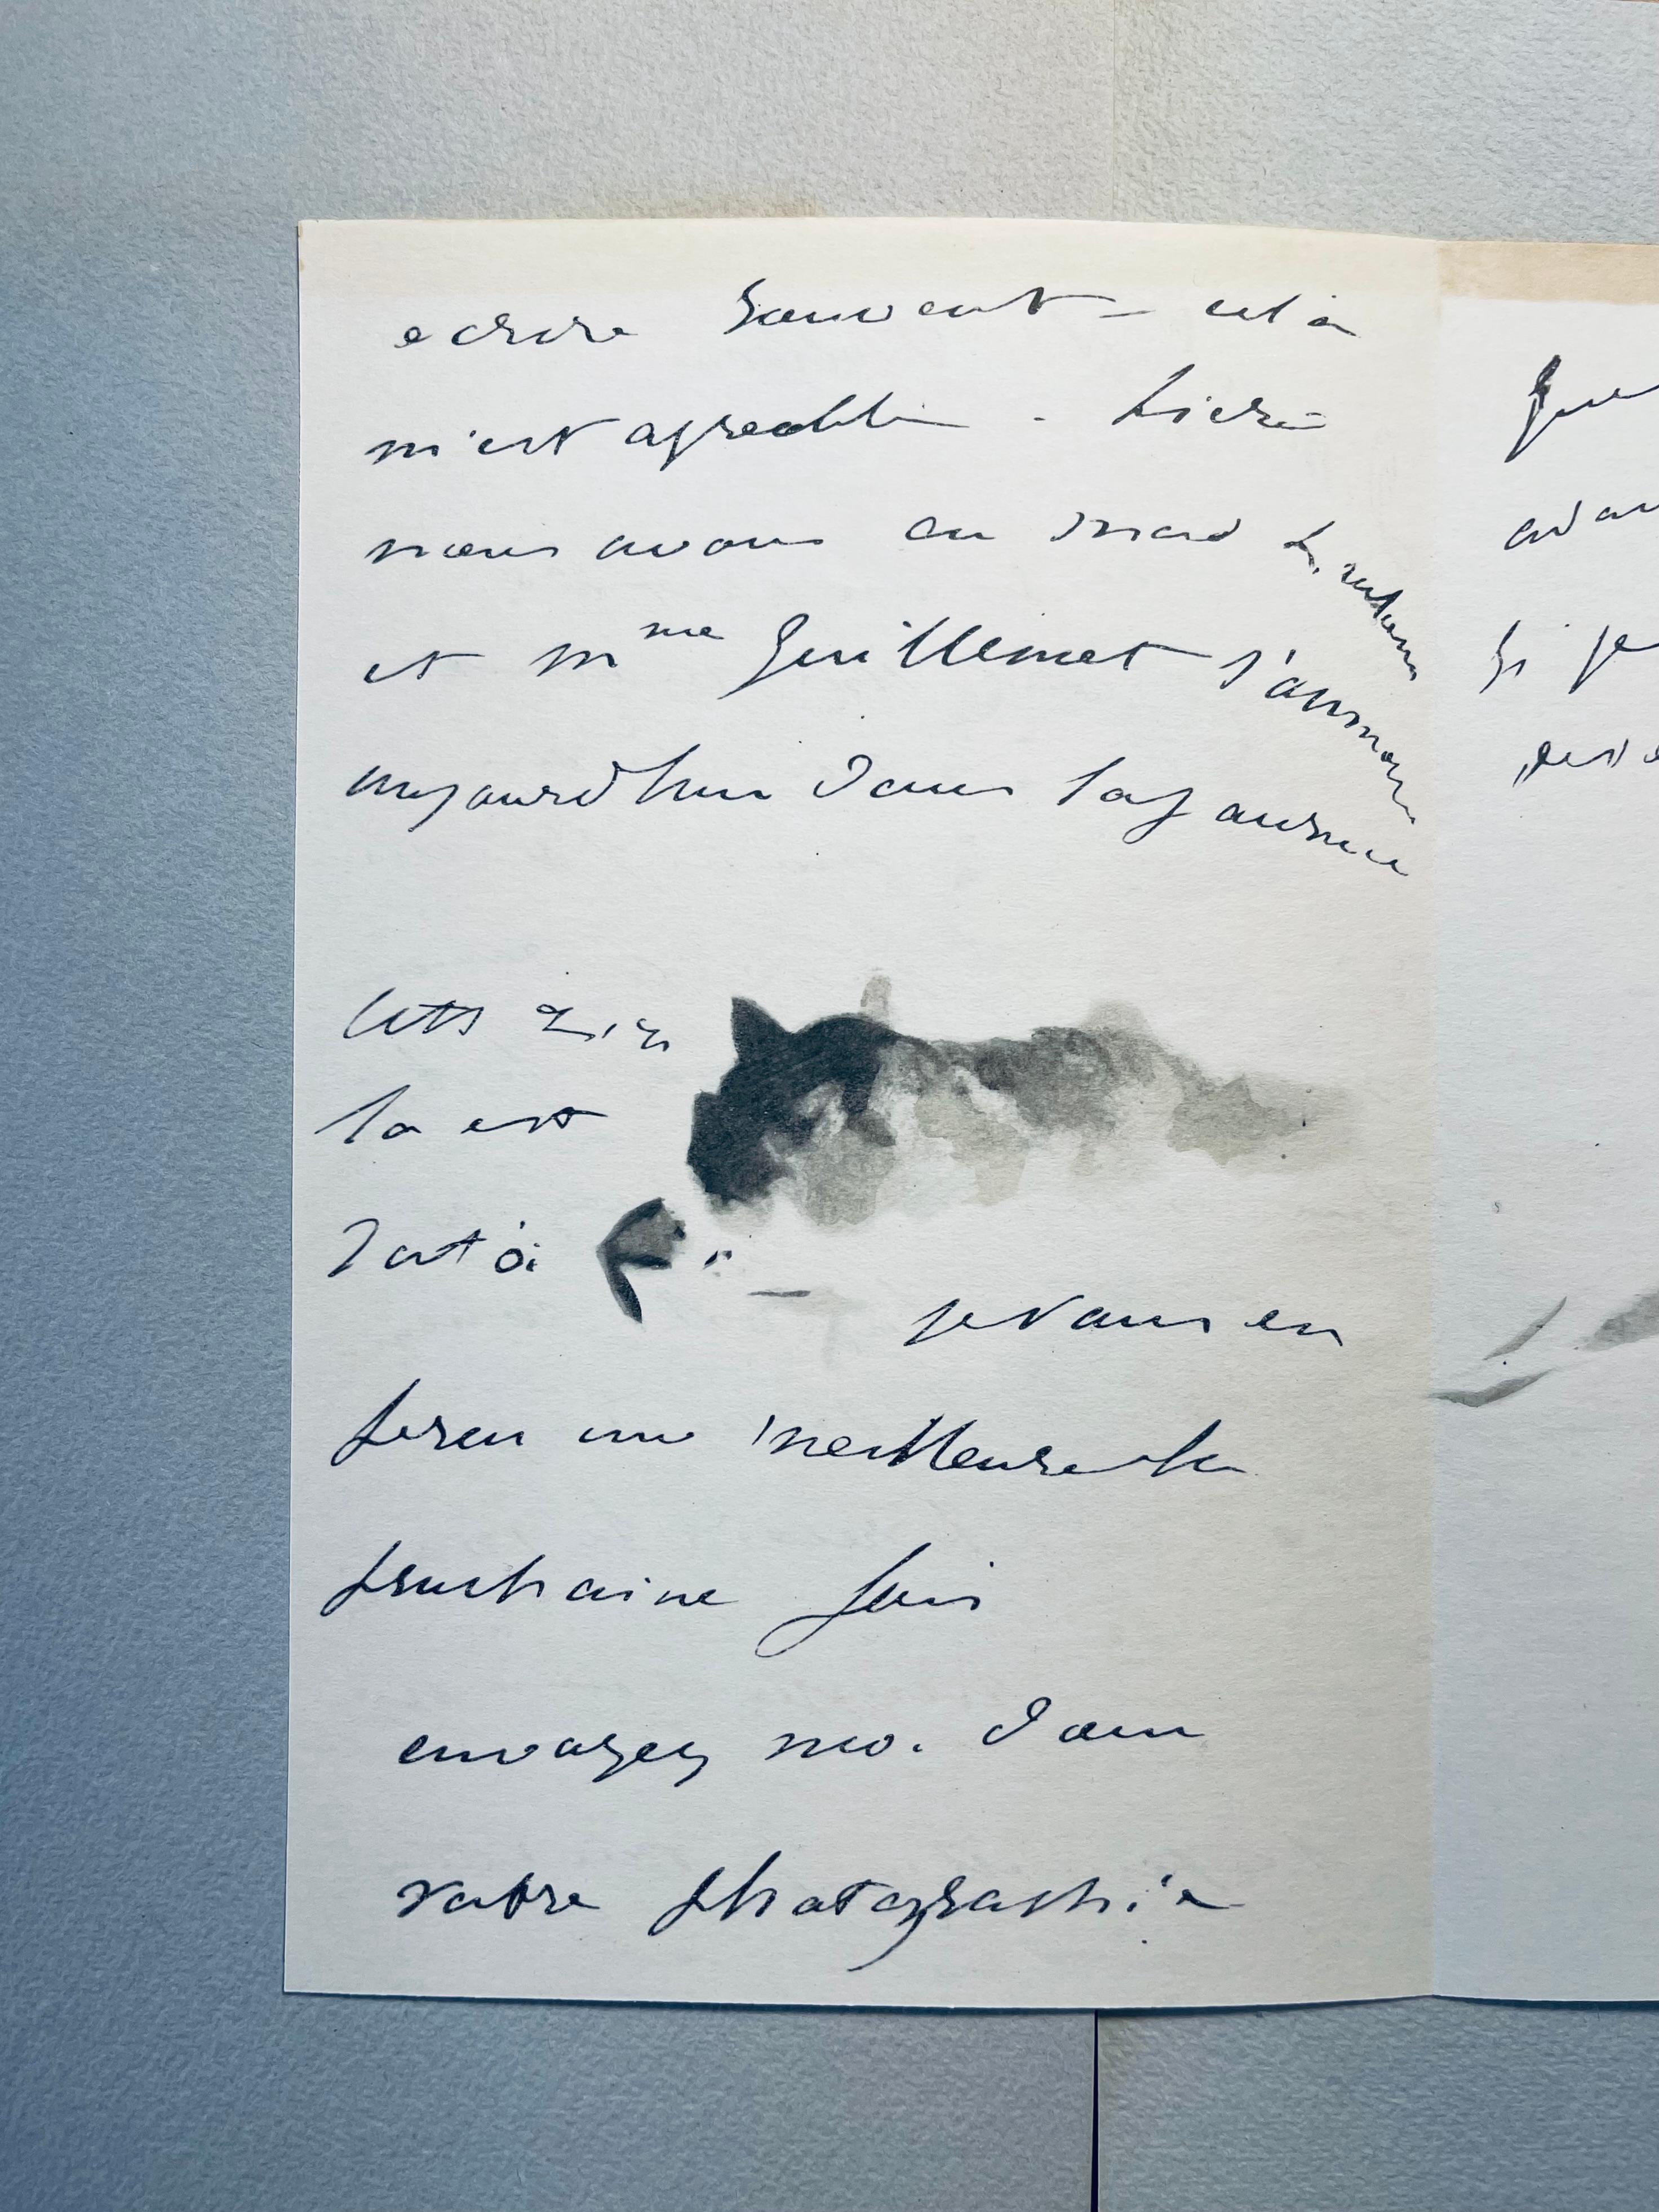 ecrire souvent – cela
m'est agreable - hier
nous avons eu Mad
et Mme Guillemet s'annonce
aujourd'hui dans la journée
cette Zizi
la est
je vous en
ferai une meilleure la
prochaine fois
envoyez moi donc
votre photographie
que
si je